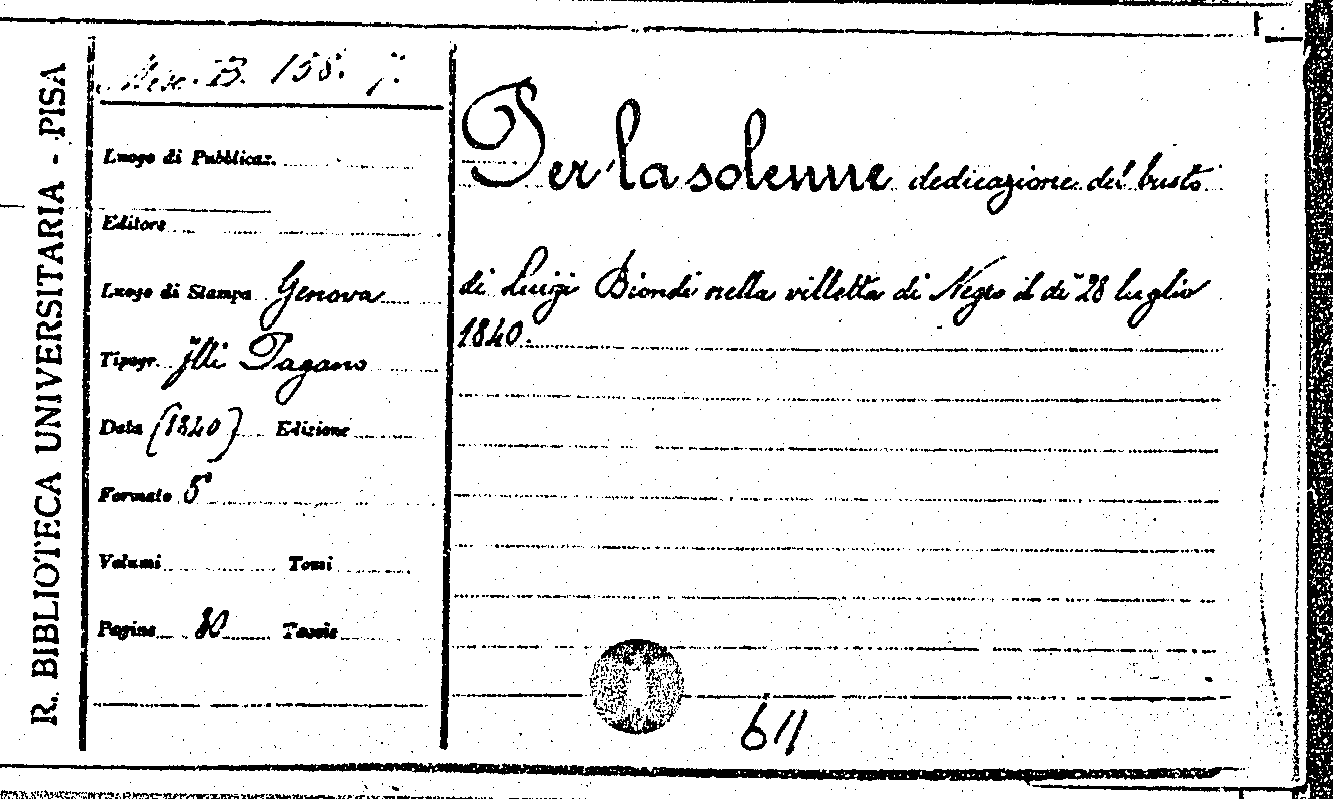 R. BIBLIOTECA UNIVERSITARIA - PISA
Misc. B. 158. 7.
Luogo di Pubblicaz.
Editore
Luogo di Stampa Genova
Tipogr. f.lli Pagano
Data (1840) Edizione
Formato 8°
Volumi Tomi
Pagine 30 Tavole
Per la solenne dedicazione del busto
di Luigi Biondi nella villetta di Negro il dì 28 luglio
1840.
611